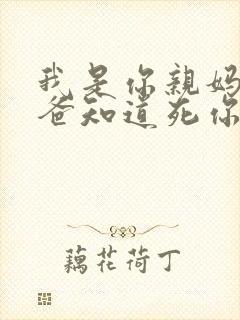 我是你親媽
爸知道死你
藕花荷丁